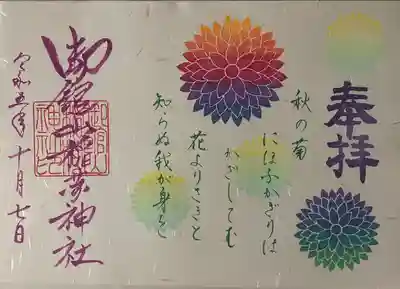 奉拝
秋の菊
にほふかぎりは
かざしてむ
花よりさきと
知らぬ我が身を
御館山稲荷神社
令和五年十月七日